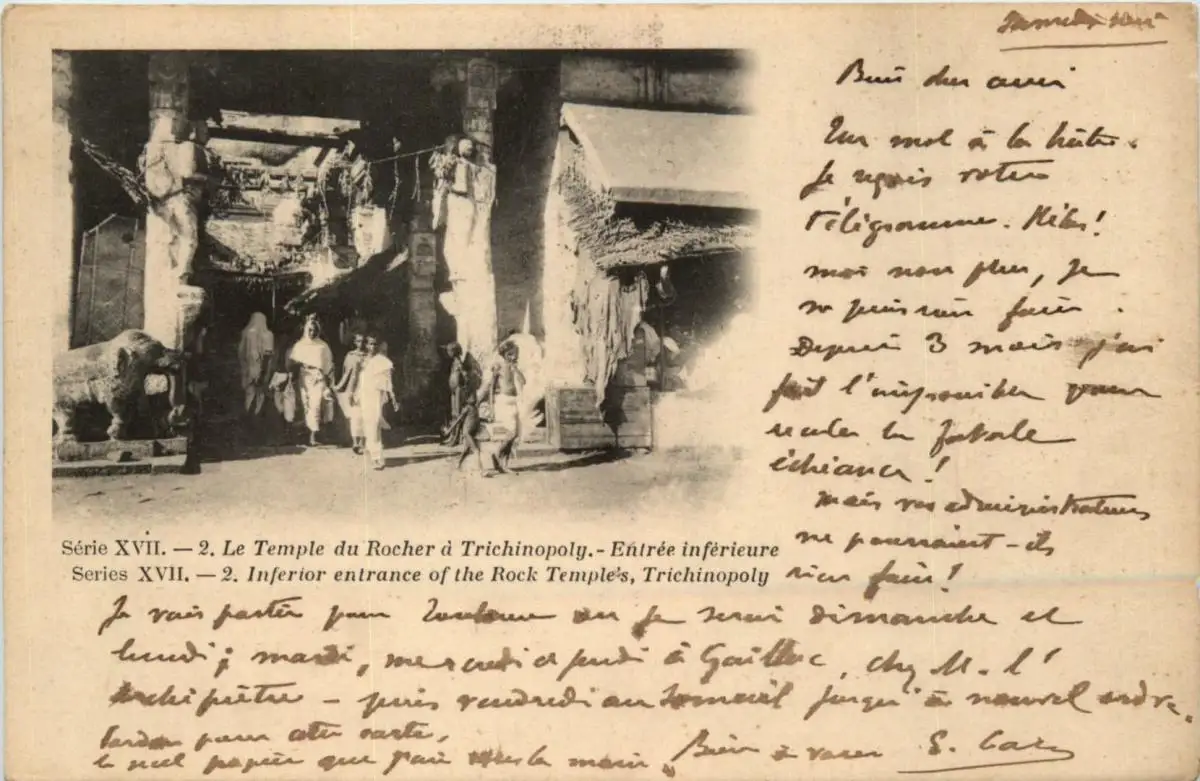 Samedi soir
Bien cher ami
Un mot à la hâte.
Je reçois votre
Télégramme. Hélas!
moi non plus, Je
ne puis rien faire.
Depuis 3 mois j'ai
fait l'impossible pour
reculer la fatale
échéance!
Mais vos administrateurs
ne pourraient-ils
rien faire!
Série XVII. — 2. Le Temple du Rocher à Trichinopoly. - Entrée inférieure
Series XVII. — 2. Inferior entrance of the Rock Temple's, Trichinopoly
Je vais partir pour Toulouse où je serai dimanche et
lundi; mardi, mercredi et jeudi à Gaillac, chez M. l'
Archiprêtre - puis vendredi au jusqu'à nouvel ordre.
Pardon pour cette carte,
le seul papier que j'aie sous la main. Bien à vous E.